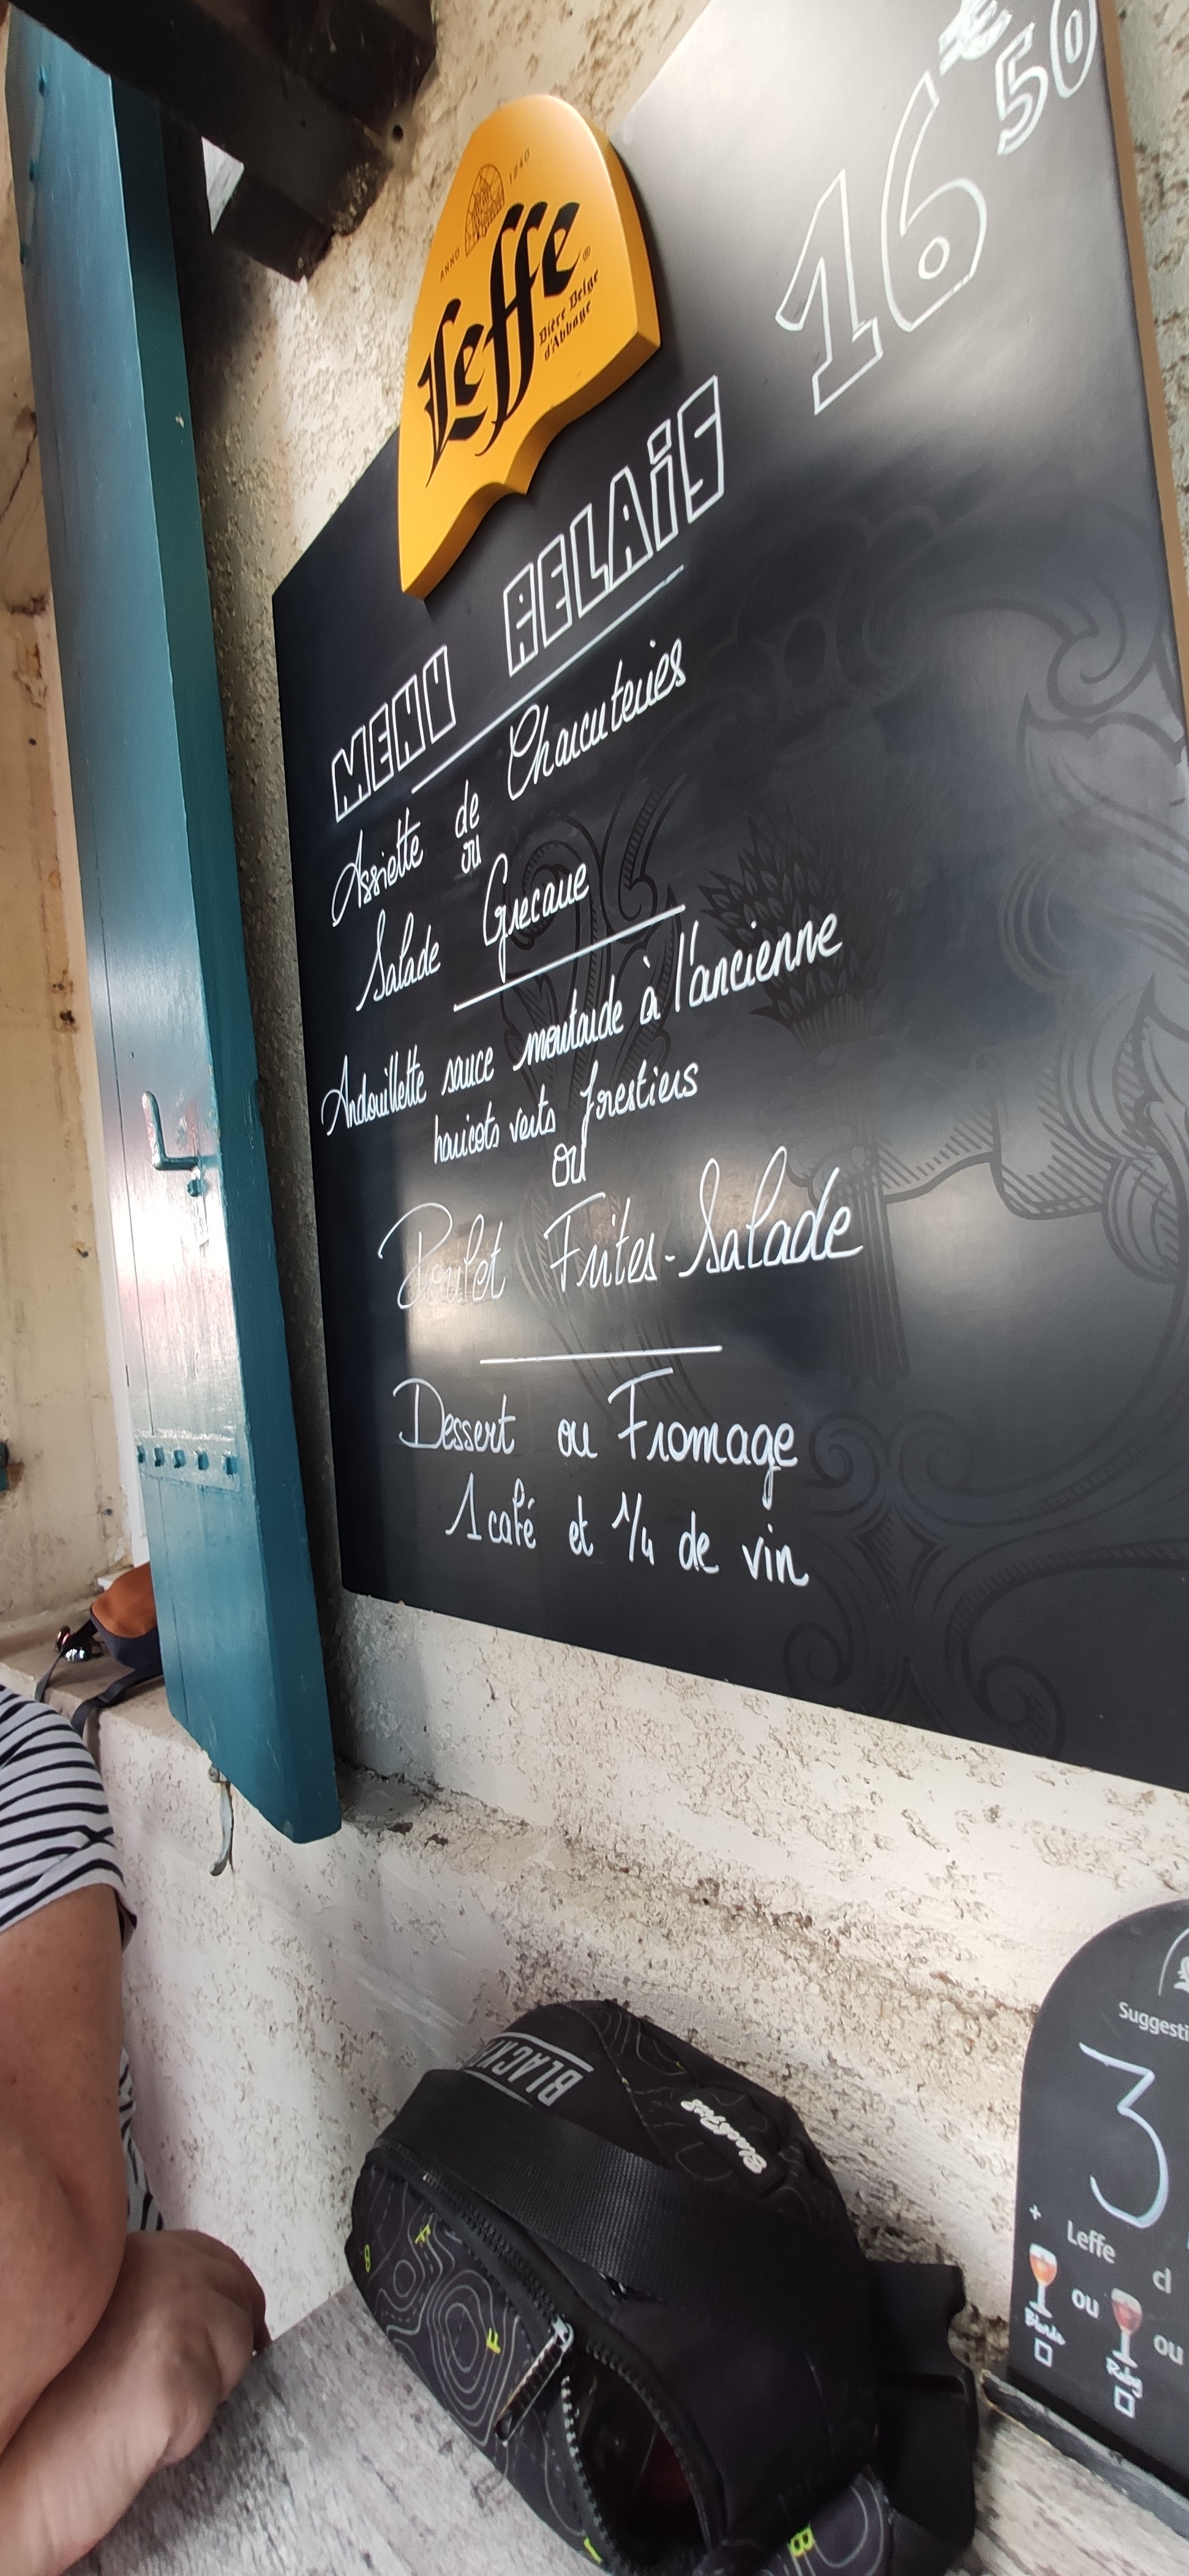 ANNO 1240
Leffe®
Bière Belge
d'Abbaye
16€50
MENU RELAIS
Assiette de Charcuteries
ou
Salade Grecque
Andouillette sauce moutarde à l'ancienne
haricots verts forestiers
ou
Poulet Frites-Salade
Dessert ou Fromage
1 café et 1/4 de vin
BLACK
Suggesti
3
+ Leffe d
ou ou
Blonde
Ruby